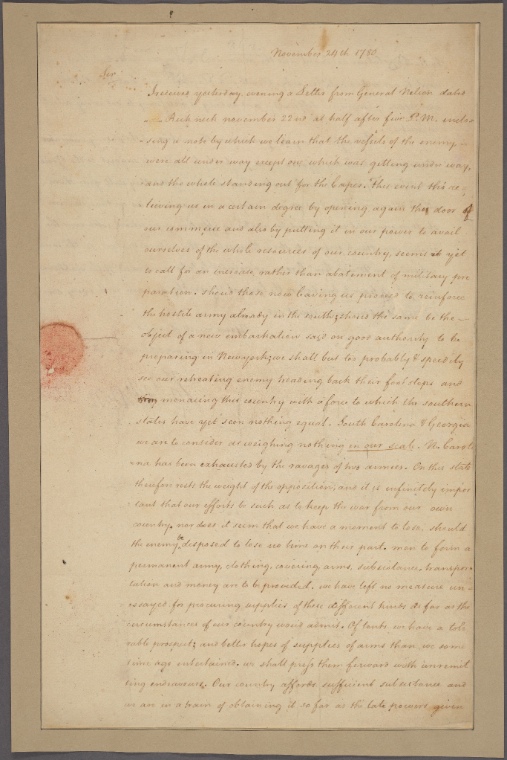 November 24th 1780
Sir
I received yesterday evening a Letter from General Nelson dated
Rich neck november 22nd at half after four P.M. enclo
sing a note by which we learn that the vessels of the enemy
were all under way except one, which was getting under way,
and the whole standing out for the Capes. this event tho' re
lieving us in a certain degree by opening again the door of
our commerce and also by putting it in our power to avail
ourselves of the whole resources of our country, seems yet
to call for an increase, rather than abatement of military pre
paration. should those now leaving us proceed to reinforce
the hostile army already in the south; should the same be the
object of a new embarkation said on good authority to be
preparing in Newyork; we shall but too probably & speedily
see our retreating enemy treading back their footsteps and
menacing this country with a force to which the southern
states have yet seen nothing equal. South Carolina & Georgia
we are to consider as weighing nothing in our scale. N. Caroli
na has been exhausted by the ravages of two armies. On this state
therefore rests the weight of the opposition, and it is infinitely impor
tant that our efforts be such as to keep the war from our own
country, nor does it seem that we have a moment to lose, should
the enemy be disposed to lose no time on their part. men to form a
permanent army, clothing, covering, arms, subsistence, transpor
tation and money are to be provided. we have left no measure un
essayed for procuring supplies of these different kinds so far as the
circumstances of our country would admit. Of tents we have a tole
rable prospect; and better hopes of supplies of arms than we some
time ago entertained. we shall press them forward with unremit
ting endeavors. Our country affords sufficient subsistence and
we are in a train of obtaining it so far as the late powers given